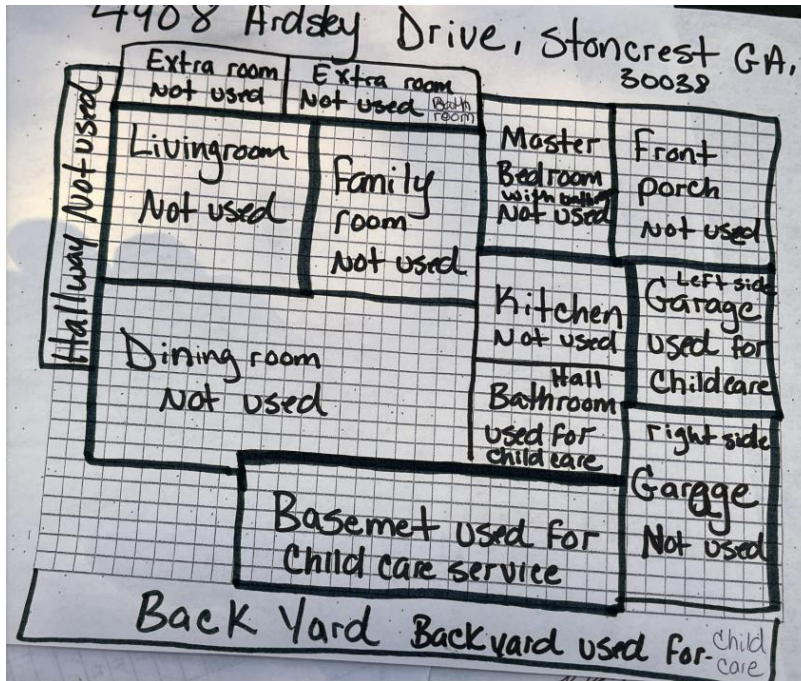 4908 Ardsley Drive, Stoncrest GA,
30038
Extra room
Not used
Extra room
Not used
Bath
room
Hallway Not used
Livingroom
Not used
Family
room
Not used
Master
Bedroom
with bath
Not used
Front
porch
Not used
Kitchen
Not used
Left side
Garage
used for
Childcare
Dining room
Not used
Hall
Bathroom
used for
child care
right side
Garage
Not used
Basemet used for
Child care service
Back Yard Backyard used for child
care